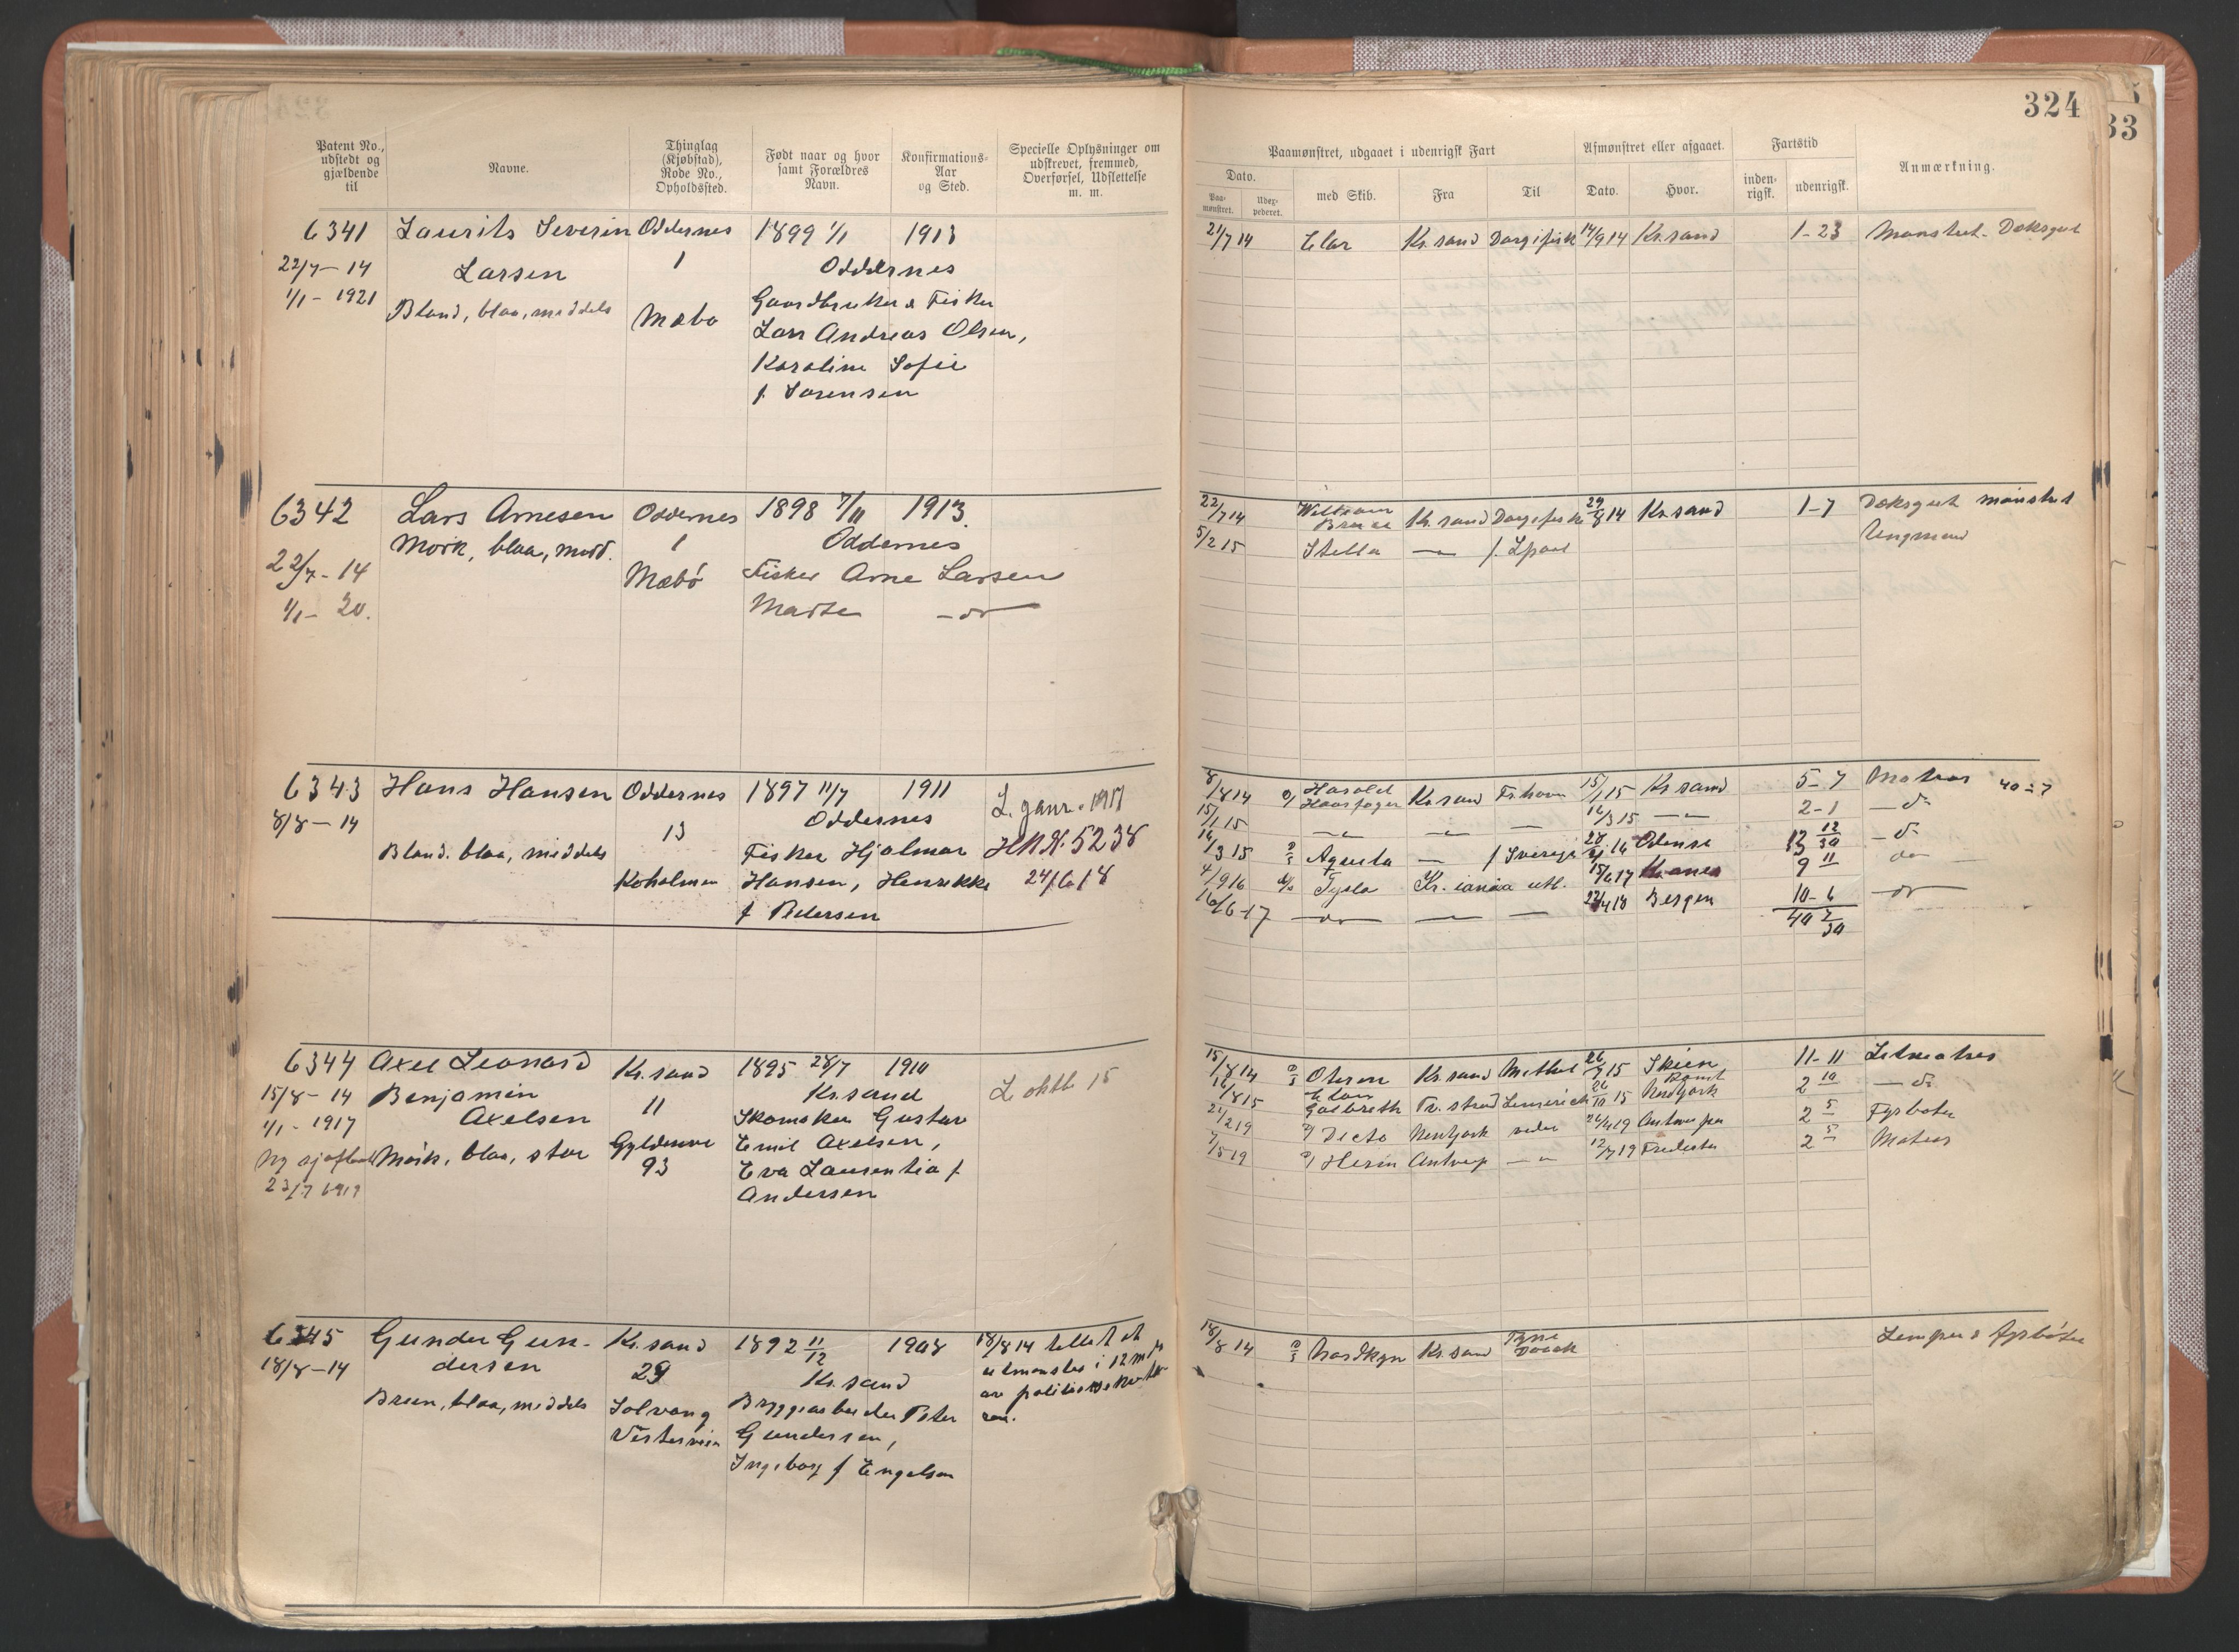 324
33
Patent No., udstedt og gjældende til
Navne.
Thinglag (Kjøbstad), Rode No., Opholdssted.
Født naar og hvor samt Forældres Navn.
Konfirmations-Aar og Sted.
Specielle Oplysninger om udskrevet, fremmed, Overførsel, Udslettelse m. m.
Paamønstret, udgaaet i udenrigsk Fart
Afmønstret eller afgaaet.
Fartstid
Anmærkning.
Dato.
Paa-mønstret.
Udex-pederet.
med Skib.
Fra
Til
Dato.
Hvor.
inden-rigsk.
udenrigsk.
6341 Laurits Severin Oddernes 1899 1/1 1913
22/7 - 14 Larsen 1 Oddernes
1/1 - 1921 Blond, blaa, middels Mæbø Gaardbruker & Fisker
Lars Andreas Olsen,
Karoline Sofie
f. Sørensen
21/7 14 Kr. sand 14/9 14 Kr. sand 1-23 Mønstret Dæksgut
6342 Lars Arnesen Oddernes 1898 7/11 1913
Mørk, blaa, midd. 1 Oddernes
22/7 - 14 Mæbø Fisker Arne Larsen
1/1 - 20. Marte
22/7 14 William Kr. sand 29/8 14 Kr. sand 1-7 Dæksgut mønstret
5/2 15 Stella Ungmand
6343 Hans Hansen Oddernes 1897 11/7 1911 1917
8/8 - 14 13 Oddernes
Blond. blaa, middels Fisker Hjalmar 5238
Koholmen Hansen, Henrikke 24/6 18
f Pedersen
8/8 14 Harald Haarfager Kr. sand Fr. havn 15/1 15 Kr. sand 5-7 Matros 40 - 7
15/1 15 16/3 15 2-1 - do
16/3 15 Agnita Sverige Odense 13 12/30 - do
4/9 16 Tysla Kr. iania utl. 15/6 17 9 11 do
16/6-17 18 Bergen 10-6 - do
40 7/30
6344 Axel Leonard Kr. sand 1895 28/7 1910 L oktb 15
15/8 - 14 Benjamin 11 Kr. sand
1/1 - 1917 Axelsen Skomaker Gustav
Mørk, blaa, stor Gyldenve Emil Axelsen,
23/7 1919 93 Eva Laurentia f
Andersen
15/8 14 Otersen Kr. sand Methil 26/7 15 Skien 11-11 Letmatros
16/8 15 Galbreth Limerick 15 New York 2 10 - do
21/2 19 Dicto New York 26/4 19 Antwerpen 2 5 Fyrbøter
7/5 19 Antverp 12/7 19 2 5 Matros
6345 Gunder Gun- Kr. sand 1892 11/12 1908 18/8 14
18/8 - 14 dersen 29 Kr. sand utmønstres i 12 m
Brun, blaa, middels Solvang Bryggearbeider Peter av
Vesterveien Gundersen,
Ingeborg f Engelsen
18/8 14 Nordkyn Kr. sand Tyne Dock Lemper & fyrbøter